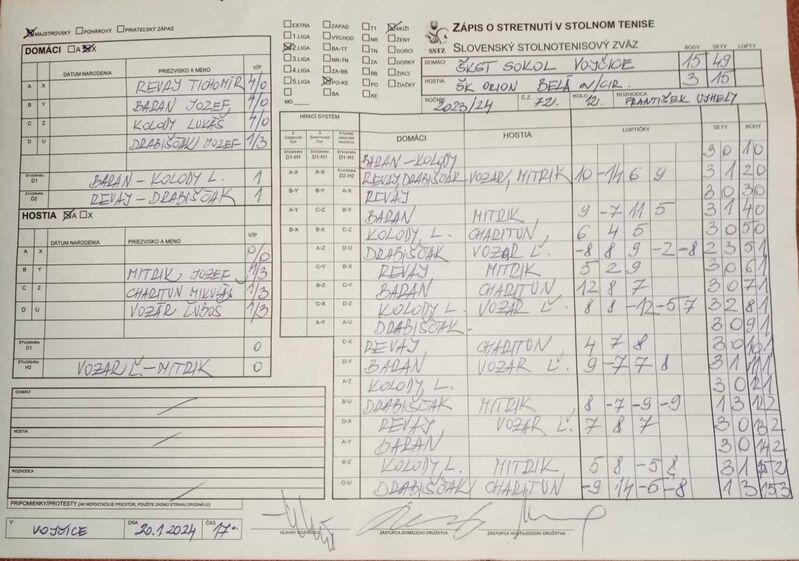 MAJSTROVSKÝ POHÁROVÝ PRIATEĽSKÝ ZÁPAS
DOMÁCI A X
DÁTUM NARODENIA PRIEZVISKO A MENO V/P
A X REVAY TICHOMÍR 4/0
B Y BARAN JOZEF 4/0
C Z KOLODY LUKÁŠ 4/0
D U DRABIŠČAK JOZEF 1/3
ŠTVORHRA D1 BARAN - KOLODY L. 1
ŠTVORHRA D2 REVAY - DRABIŠČAK 1
HOSTIA A X
DÁTUM NARODENIA PRIEZVISKO A MENO V/P
A X 0/0
B Y MITRIK JOZEF 1/3
C Z CHARITUN MIKULÁŠ 1/3
D U VOZÁR ĽUBOŠ 1/3
ŠTVORHRA D1 0
ŠTVORHRA H2 VOZAR Ľ. - MITRIK 0
DOMÁCI
HOSTIA
ROZHODCA
PRIPOMIENKY/PROTESTY (AK NEPOSTAČUJE PRIESTOR, POUŽITE ZADNÚ STRANU ORIGINÁLU)
V VOJČICE DŇA 20.1.2024 ČAS 17
EXTRA ZÁPAD TT MUŽI
1.LIGA VÝCHOD NR ŽENY
2.LIGA BA-TT TN DORCI
3.LIGA NR-TN ZA DORKY
4.LIGA ZA-BB BB ŽIACI
5.LIGA PO-KE PO ŽIAČKY
MO BA KE
SSTZ
ZÁPIS O STRETNUTÍ V STOLNOM TENISE
SLOVENSKÝ STOLNOTENISOVÝ ZVÄZ
BODY SETY LOPTY
DOMÁCI ŠKST SOKOL VOJČICE 15 49
HOSTIA ŠK ORION BELÁ N/CIR. 3 15
ROČNÍK 2023/24 Č.Z. 72. KOLO 12. ROZHODCA FRANTIŠEK UJHELY
HRACÍ SYSTÉM DOMÁCI HOSTIA LOPTIČKY SETY BODY
D1-H1 D1-H1 D1-H1 BARAN - KOLODY 3 0 1 0
A-X A-X D2-H2 REVAY DRABIŠČAK - VOZAR, MITRIK 10 -14 6 9 3 1 2 0
B-Y B-Y A-X REVAY 3 0 3 0
A-Y C-Z B-Y BARAN MITRIK 9 -7 11 5 3 1 4 0
B-X B-X C-Z KOLODY, L. CHARITUN, 6 4 5 3 0 5 0
A-Z D-U DRABIŠČAK VOZAR Ľ. -8 8 9 -2 -8 2 3 5 1
C-Y B-X REVAY MITRIK 5 2 9 3 0 6 1
B-Z C-Y BARAN CHARITUN 12 8 7 3 0 7 1
C-X D-Z KOLODY L. VOZAR Ľ. 8 8 -12 -5 7 3 2 8 1
A-Y A-U DRABIŠČAK 3 0 9 1
C-X REVAY CHARITUN 4 7 8 3 0 10 1
D-Y BARAN VOZAR Ľ. 9 -7 7 8 3 1 11 1
A-Z KOLODY, L. 3 0 12 1
B-U DRABIŠČAK MITRIK 8 -7 -9 -9 1 3 12 2
D-X REVAY VOZAR Ľ. 7 8 7 3 0 13 2
A-Y BARAN 3 0 14 2
B-Z KOLODY, L. MITRIK 5 8 -5 8 3 1 15 2
C-U DRABIŠČAK CHARITUN -9 14 -6 -8 1 3 15 3
HLAVNÝ ROZHODCA ZÁSTUPCA DOMÁCEHO DRUŽSTVA ZÁSTUPCA HOSŤUJÚCEHO DRUŽSTVA